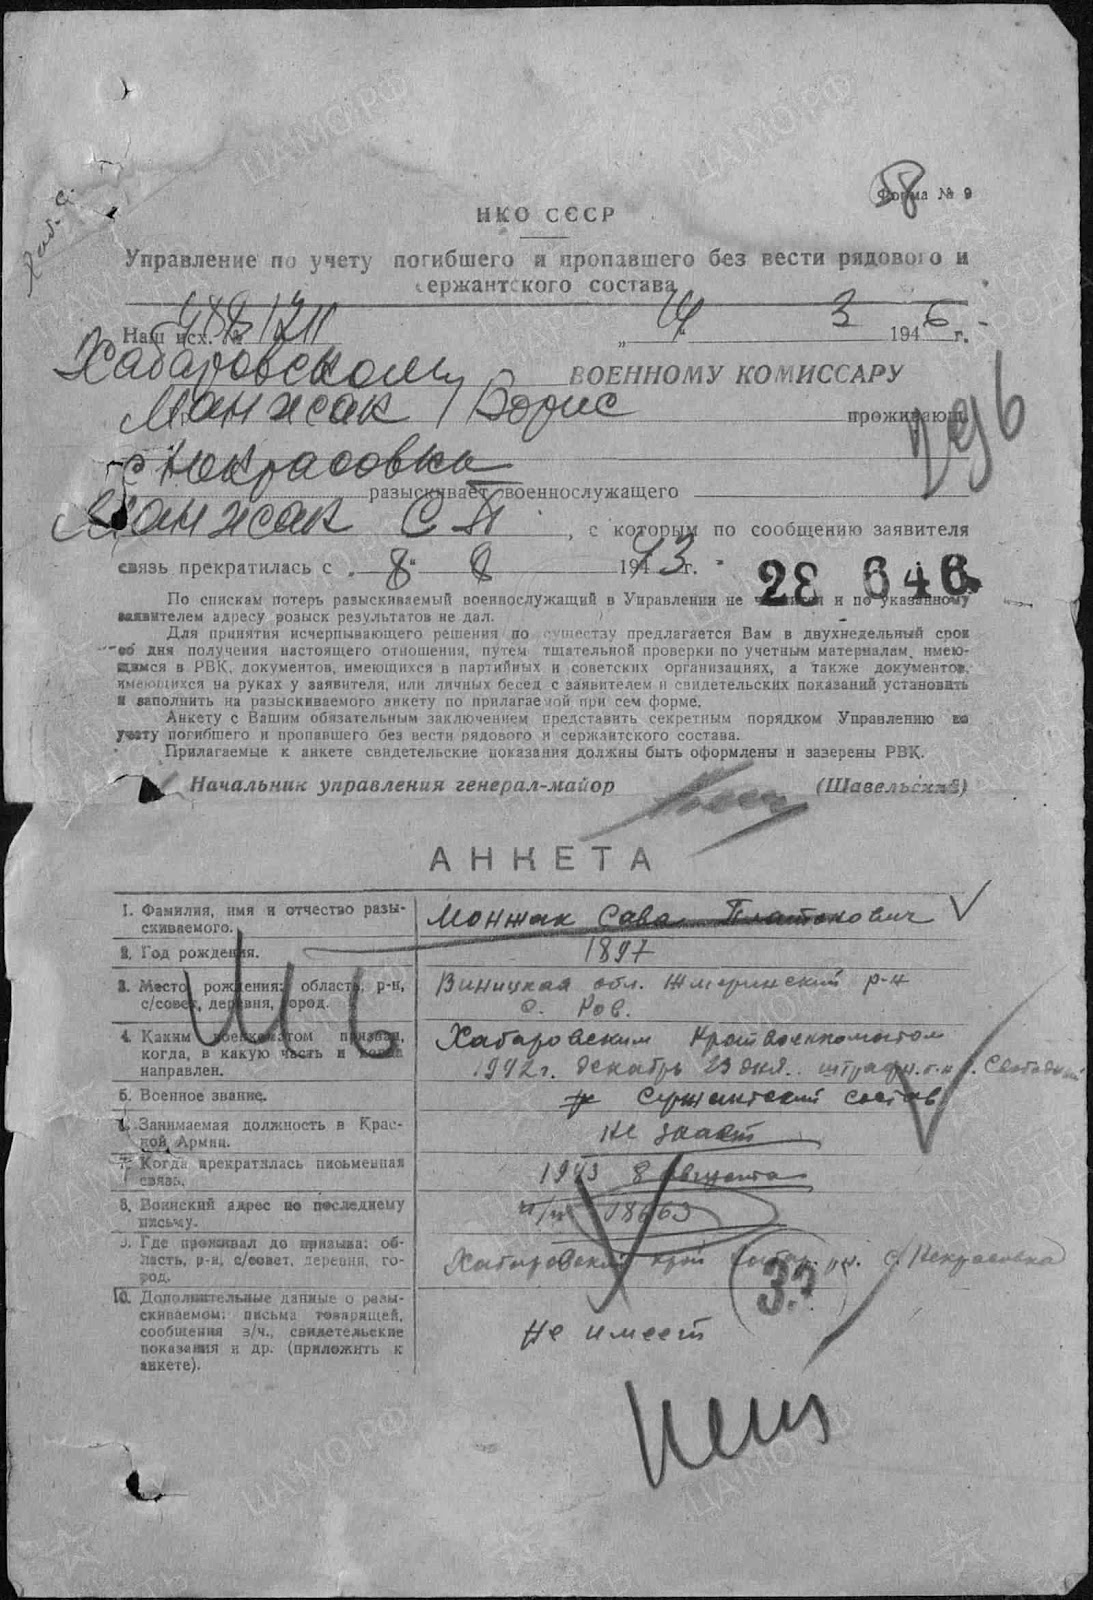 58
Форма № 9
НКО СССР
Управление по учету погибшего и пропавшего без вести рядового и
сержантского состава
Наш исх. №
194 6 г.
Хабаровскому ВОЕННОМУ КОМИССАРУ
Манжак Борис проживающ.
с Некрасовка
разыскивает военнослужащего
Манжак С П, с которым по сообщению заявителя
связь прекратилась с „ 8 " 8 1943 г.
28 646
По спискам потерь разыскиваемый военнослужащий в Управлении не и по указанному
заявителем адресу розыск результатов не дал.
Для принятия исчерпывающего решения по существу предлагается Вам в двухнедельный срок
со дня получения настоящего отношения, путем тщательной проверки по учетным материалам, имею-
щимся в РВК, документов, имеющихся в партийных и советских организациях, а также документов,
имеющихся на руках у заявителя, или личных бесед с заявителем и свидетельских показаний установить
и заполнить на разыскиваемого анкету по прилагаемой при сем форме.
Анкету с Вашим обязательным заключением представить секретным порядком Управлению по
учету погибшего и пропавшего без вести рядового и сержантского состава.
Прилагаемые к анкете свидетельские показания должны быть оформлены и заверены РВК.
Начальник управления генерал-майор (Шавельский)
АНКЕТА
1. Фамилия, имя и отчество разы-
скиваемого.
Монжак Сава Платонович
2. Год рождения.
1897
3. Место рождения: область, р-н,
с/совет, деревня, город.
Виницкая обл. Жмеринский р-н
с. Ров.
4. Каким военкоматом призван,
когда, в какую часть и когда
направлен.
Хабаровским Крайвоенкоматом
1942г. декабрь 23 дня. штрафн.
5. Военное звание.
Сержантский состав
6. Занимаемая должность в Крас-
ной Армии.
не знает
7. Когда прекратилась письменная
связь.
1943 8 августа
8. Воинский адрес по последнему
письму.
п/п 18663
9. Где проживал до призыва: об-
ласть, р-н, с/совет, деревня, го-
род.
Хабаровский край с. Некрасовка
10. Дополнительные данные о разы-
скиваемом: письма товарищей,
сообщения з/ч., свидетельские
показания и др. (приложить к
анкете).
Не имеет
33